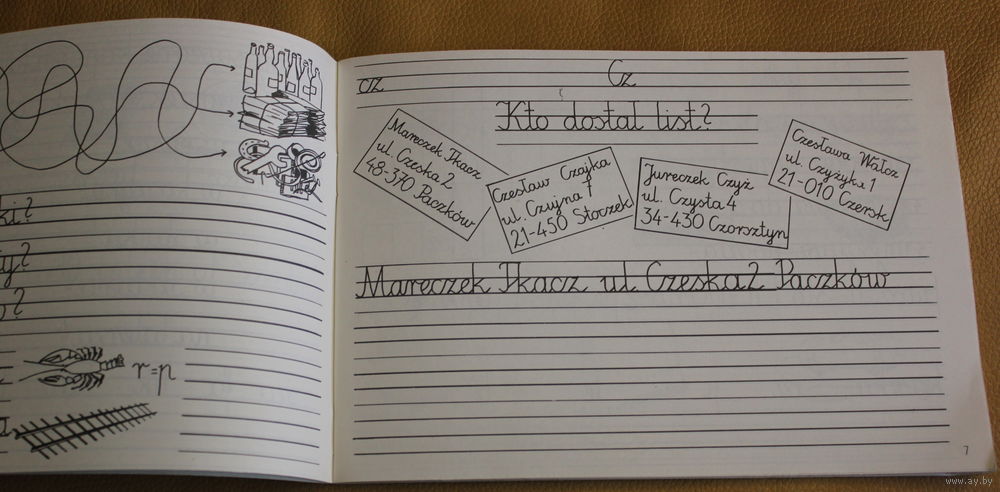 ki?
y?
o?
r=p
cz Cz
Kto dostał list?
Mareczek Tkacz
ul. Czeska 2
48-370 Paczków
Czesław Czajka
ul. Czujna 7
21-450 Stoczek
Jureczek Czyż
ul. Czysta 4
34-430 Czorsztyn
Czesława Wałcz
ul. Czyżyka 1
21-010 Czersk
Mareczek Tkacz ul. Czeska 2 Paczków
7
www.ay.by